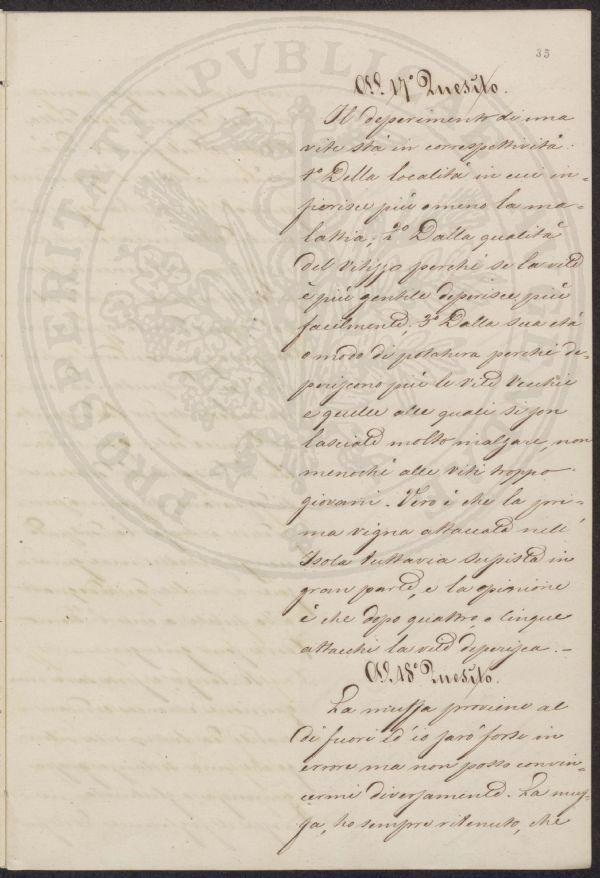 35
Al 17º Quesito.
Il deperimento di una
vite stà in correspettività:
1º Della località in cui in=
fierisce più o meno la ma=
lattia; 2º Dalla qualità
del vitizzo perchè se la vite
è più gentile deperisce più
facilmente; 3º Dalla sua età
o modo di potatura perchè de=
periscono più le viti vecchie
e quelle alle quali si son
lasciate molto inalzare, non
menochè alle viti troppo
giovani. Vero è che la pri=
ma vigna attaccata nell'
Isola tuttavia sussiste in
gran parte, e la opinione
è che dopo quattro, o cinque
attacchi la vite deperisca. –
Al 18º Quesito.
La muffa proviene al
di fuori ed io sarò forse in
errore ma non posso convin=
cermi diversamente. La muf=
fa, ho sempre ritenuto, che
PROSPERITATI PVBLICAE AVGENDAE